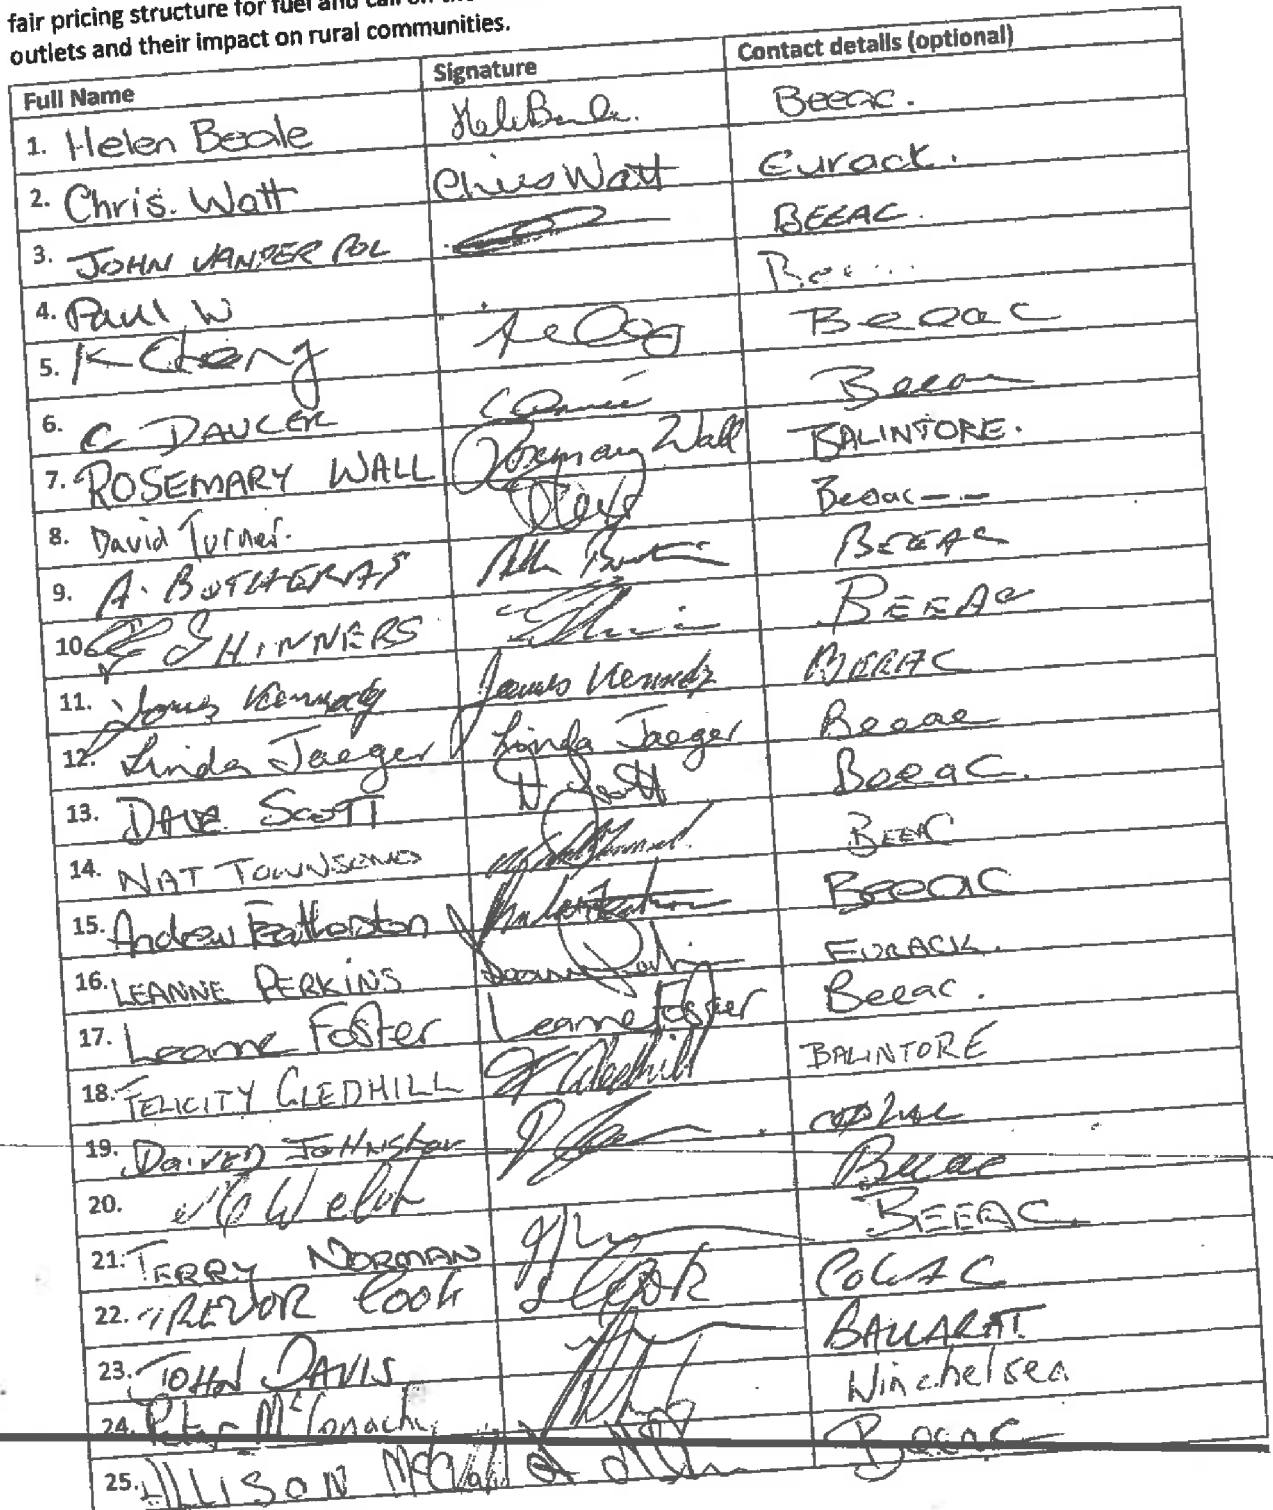 fair pricing structure for fuel and call on the
outlets and their impact on rural communities.
Full Name Signature Contact details (optional)
1. Helen Beale Beeac.
2. Chris. Watt Chris Watt Eurack.
3. JOHN VANDER POL BEEAC.
4. Paul W
5. K Beeac
6. C Beeac
7. ROSEMARY WALL Rosemary Wall BALINTORE.
8. David Turner. Beeac
9. A. BOTHERAS BEEAC
10. SHINNERS BEEAC
11. James Kennedy James Kennedy BEEAC
12. Linda Jaeger Linda Jaeger Beeac
13. DAVE SCOTT D Scott Beeac.
14. NAT TOWNSEND BEEAC
15. Andrew Featherston Beeac
16. LEANNE PERKINS EURACK.
17. Leanne Foster Leanne Foster Beeac.
18. FELICITY GLEDHILL F Gledhill BALINTORE
19. Johnston
20. Welsh Beeac
21. TERRY NORMAN BEEAC
22. TREVOR Cook T Cook COLAC
23. JOHN DAVIS BALLARAT
24. Peter Winchelsea
25. ALLISON Beeac